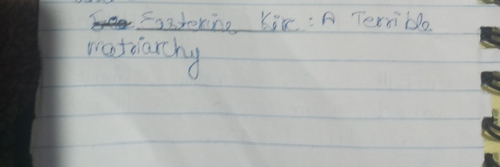 Easterine Kire : A Terrible
Matriarchy